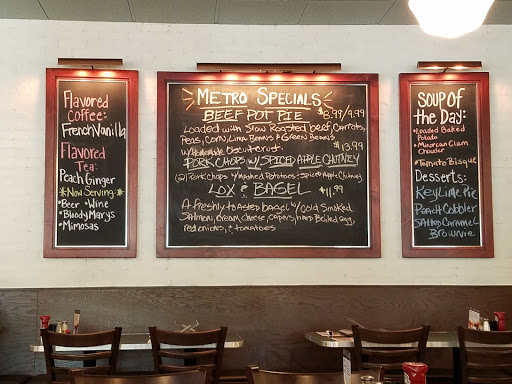 Flavored
Coffee:
French Vanilla
Flavored
Tea:
Peach Ginger
*Now Serving:*
•Beer •Wine
•Bloody Marys
•Mimosas
Metro Specials
BEEF POT PIE $8.99/9.99
Loaded with Slow Roasted beef, Carrots,
Peas, Corn, Lima Beans & Green Beans
w/Homemade Pie crust. $13.99
PORK CHOPS w/ SPICED APPLE CHUTNEY
(2) Pork Chops w/ Mashed Potatoes & Spiced Apple Chutney
LOX & BAGEL $11.99
A Freshly toasted bagel w/ Cold Smoked
Salmon, Cream Cheese, Capers, hard Boiled egg,
red onions, & tomatoes
SOUP of
the DAY:
•Loaded Baked
Potato
•Minorcan Clam
Chowder
•Tomato Bisque
Desserts:
Key Lime Pie
Peach Cobbler
Salted Caramel
Brownie